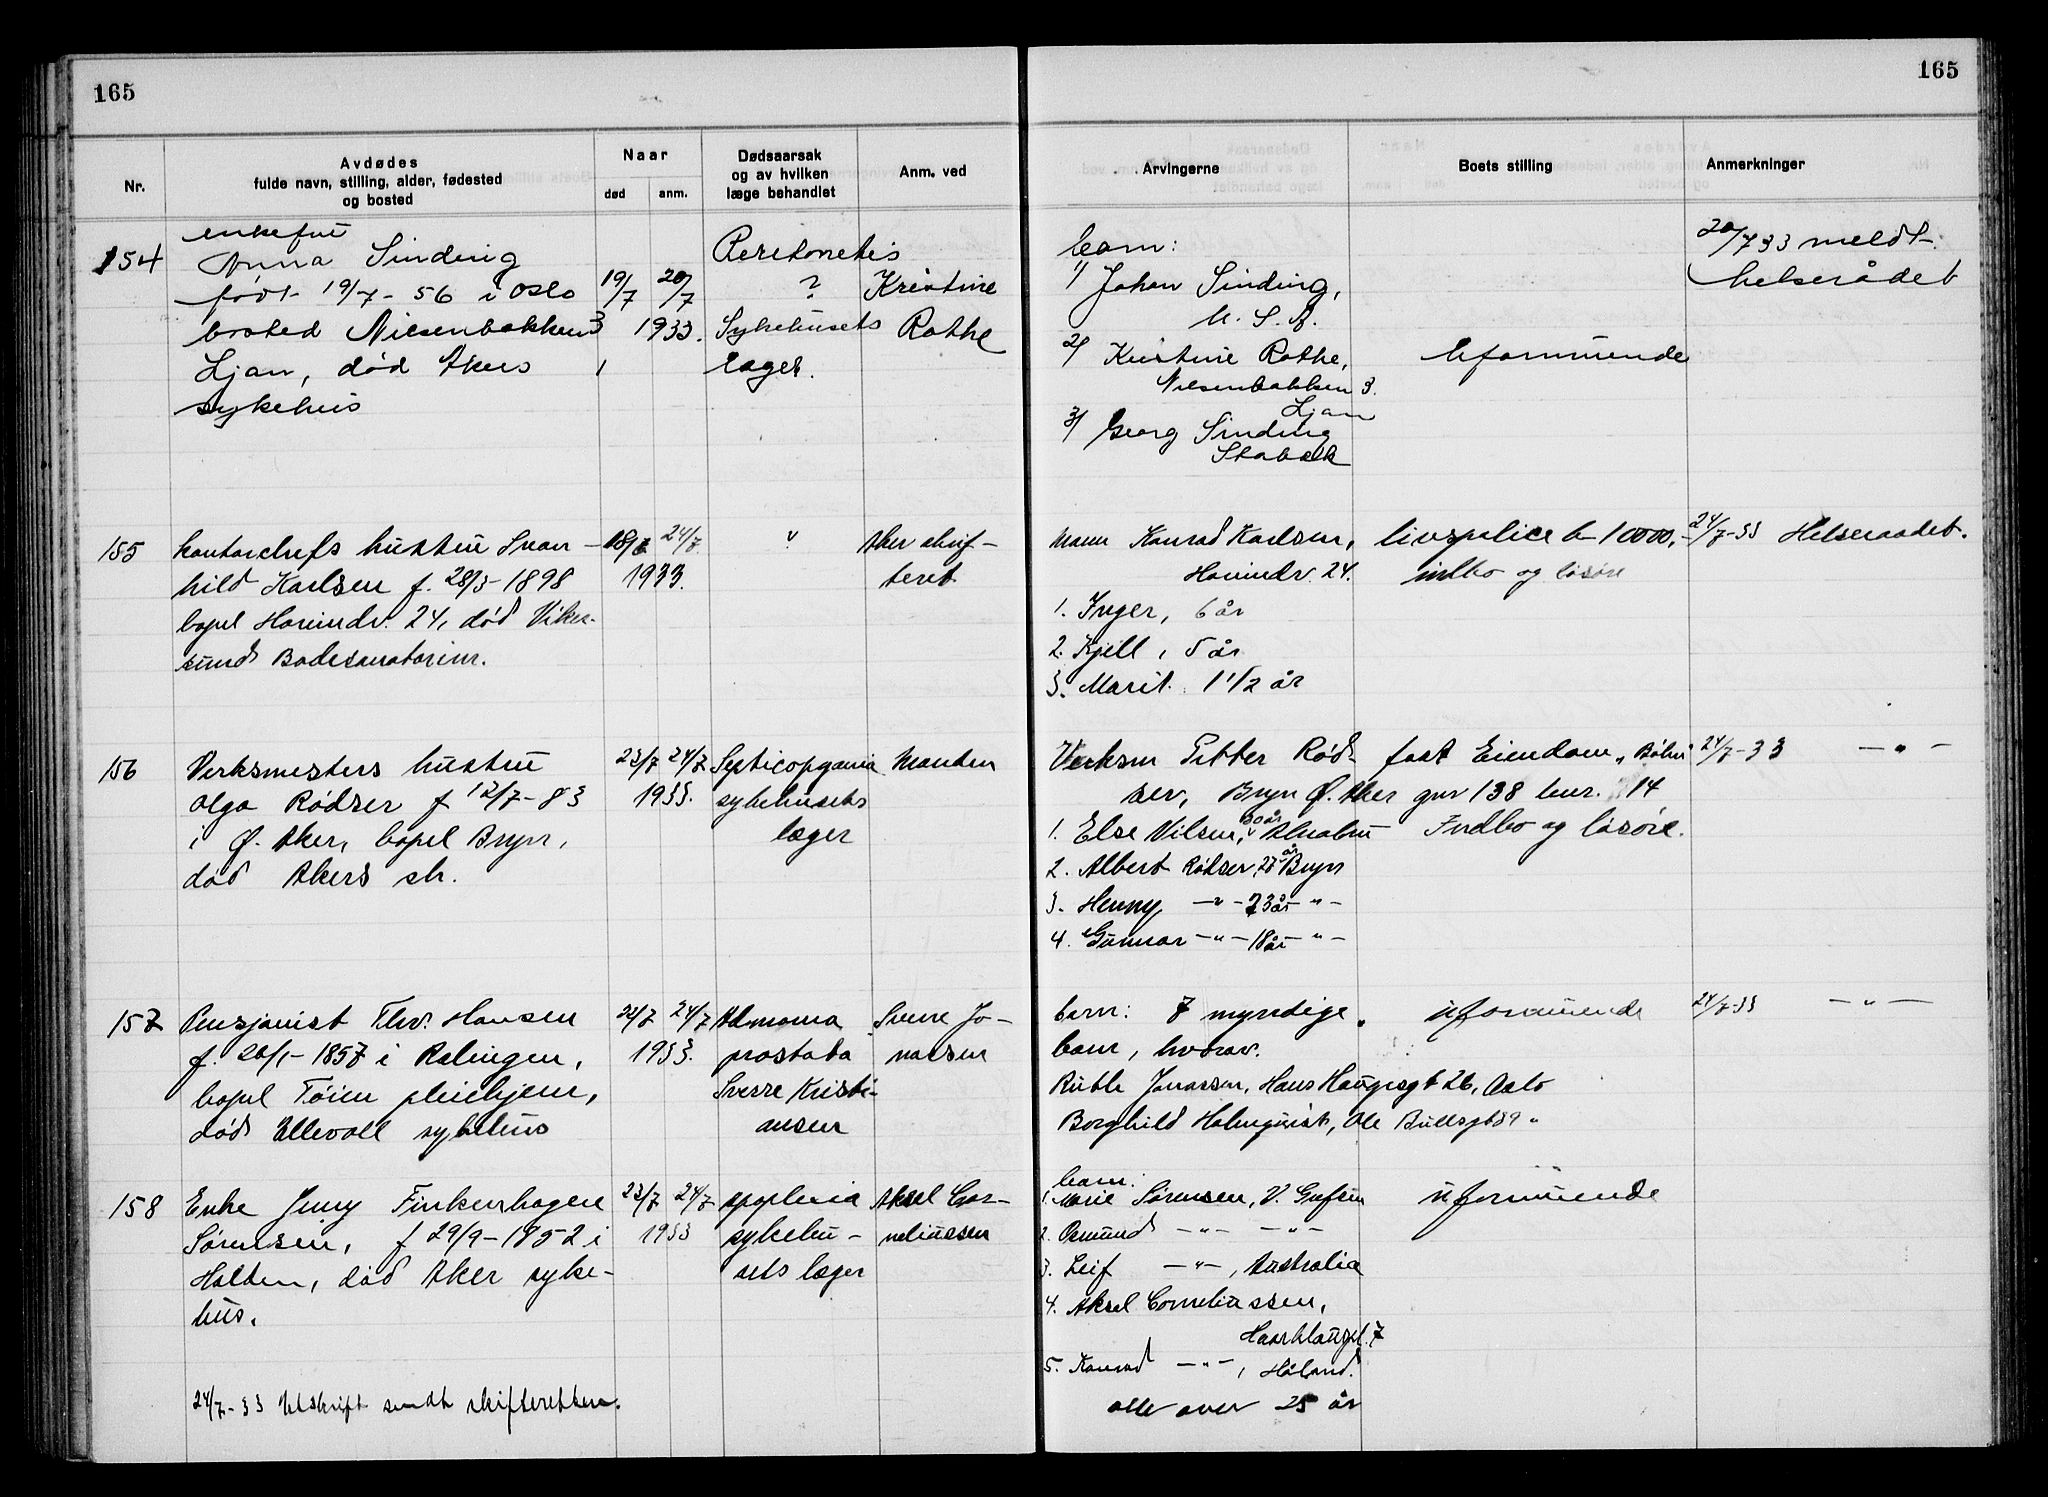 165
165
Nr.
Avdødes
fulde navn, stilling, alder, fødested
og bosted
Naar
død
anm.
Dødsaarsak
og av hvilken
læge behandlet
Anm. ved
Arvingerne
Boets stilling
Anmerkninger
154
enkefru
Anna Sinding
født 19/7-56 i Oslo
bosted Nilsenbakken 3
Ljan, død Akers
sykehus
19/7 20/7
1933.
Peritonetis
?
Sykehusets
læger.
Kristine
Rothe
barn:
1/ Johan Sinding,
U. S. A.
2/ Kristine Rothe,
Nilsenbakken 3.
Ljan
3/ Georg Sinding
Stabæk
Uformuende
20/7 33 meldt
helserådet
155
Kontorchefs hustru Svan-
hild Karlsen f. 28/3-1898
bopel Hovindv. 24, død Viker-
sund Badesanatorium.
18/7 24/7
1933.
?
Aker skif-
teret
Mann Konrad Karlsen,
Hovindv. 24.
1. Inger, 6 år
2. Kjell, 5 år
3. Marit. 1 1/2 år
livspolice kr 10000,-
indbo og løsøre
24/7-33 Helseraadet.
156
Verksmesters hustru
Olga Rødser f 12/7-83
i Ø. Aker, bopel Bryn,
død Akers sh.
23/7 24/7
1933.
Septicopyæmia
sykehusets
læger
Manden
Verksm Petter Rød-
ser, Bryn Ø. Aker
1. Else Nilsen, 30 år, Alnabru
2. Albert Rødser, 28 år Bryn
3. Henny -"- 23 år -"-
4. Gunnar -"- 18 år -"-
fast Eiendom
gnr 138 bnr. 14
Indbo og løsøre.
24/7-33 -"-
157
Pensjonist Thv. Hansen
f. 20/1-1857 i Rælingen,
bopel Tøien pleiehjem,
død Ullevoll sykehus
24/7
1933.
prostata
Sverre Kristi-
ansen
Sverre Jo-
nassen
barn: 7 myndige
barn, hvorav.
Ruth Jonassen, Hans Haugesgt 26, Oslo
Borghild Holmquist, Ole Bullsgt 39 "
uformuende
24/7-33 -"-
158
Enke Jenny Finkenhagen
Sørensen, f 29/9-1852 i
Halden, død Aker syke-
hus.
23/7 24/7
1933
apoplexia
sykehu-
sets læger
Aksel Cor-
neliussen
barn:
1. Marie Sørensen,
2. Osmund -"- -"-
3. Leif -"-, Australia
4. Aksel Corneliussen,
5. Konrad -"-, Høland.
alle over 25 år
uformuende
24/7-33 Utskrift sendt skifteretten.